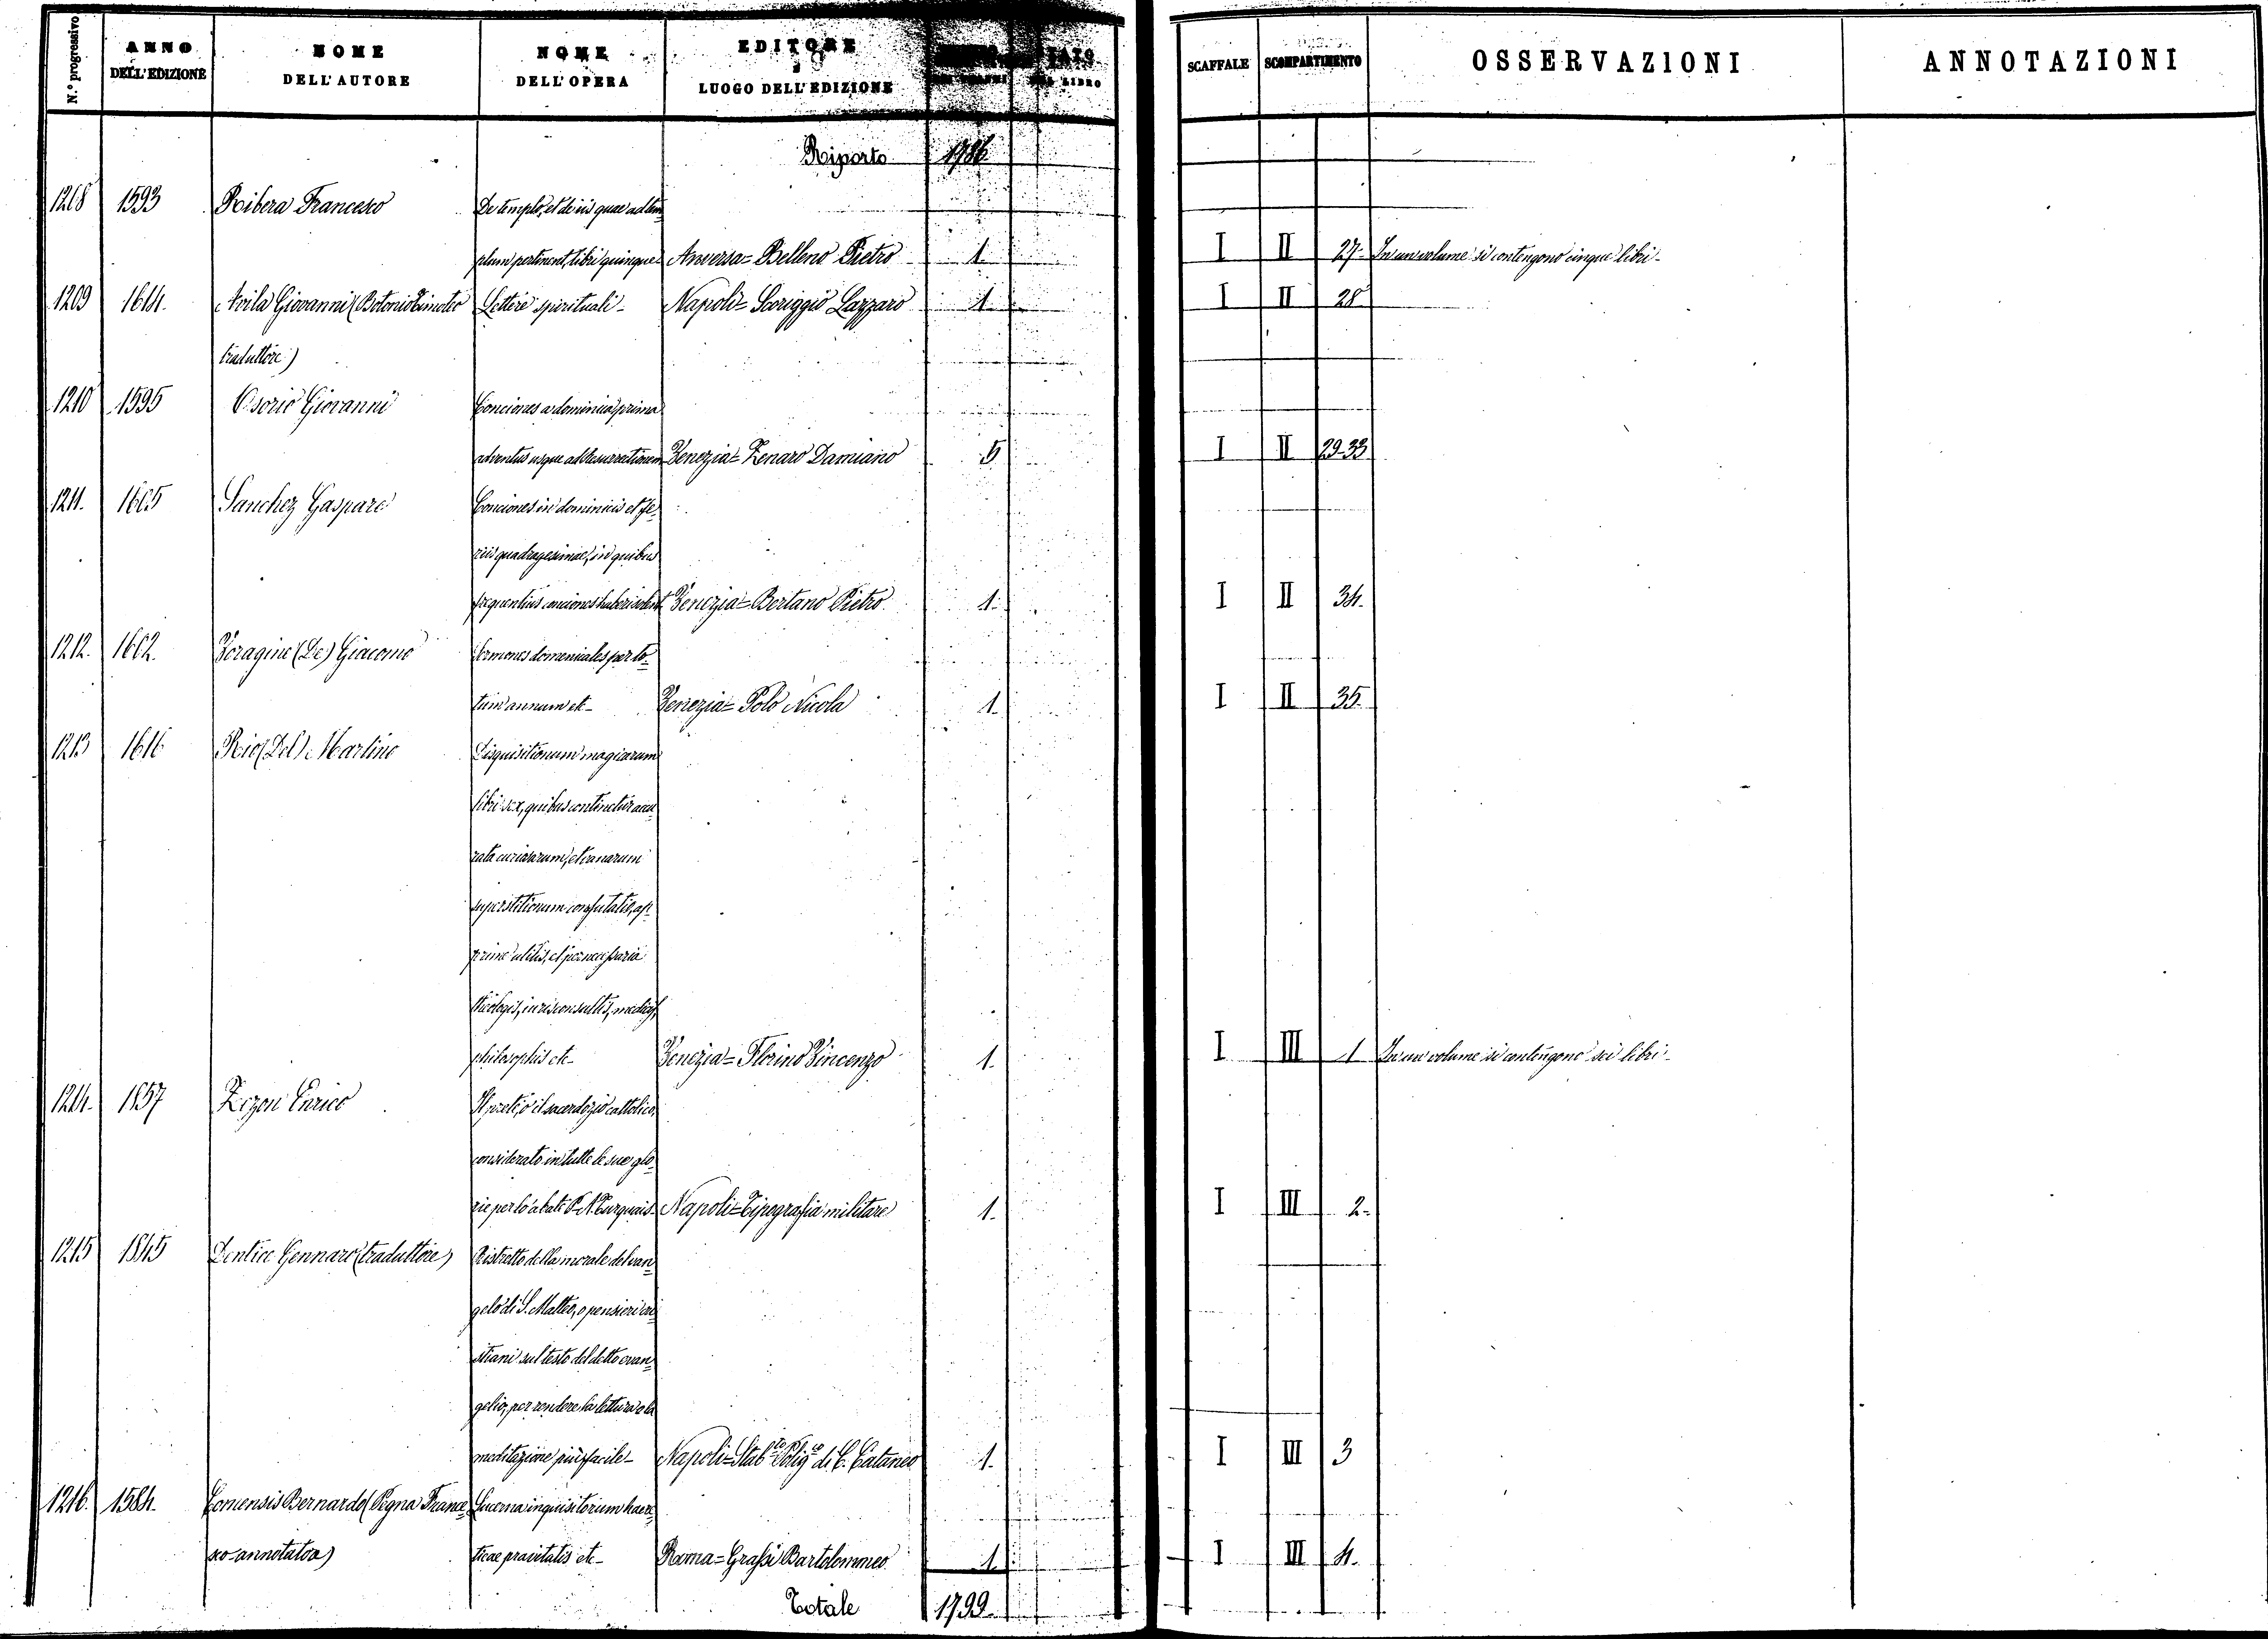 N.º progressivo
ANNO DELL'EDIZIONE
NOME DELL'AUTORE
NOME DELL'OPERA
EDITORE e LUOGO DELL'EDIZIONE
STATO DEL LIBRO
SCAFFALE
SCOMPARTIMENTO
OSSERVAZIONI
ANNOTAZIONI
Riporto 1786
1208 1593 Ribera Francesco De templo, et de iis quae ad tem=
plum pertinent, libri quinque Anversa= Bellero Pietro 1 I II 27. In un volume si contengono cinque libri-
1209 1614. Avila Giovanni (Botonio Timoteo Lettere spirituali- Napoli= Scoriggio Lazzaro 1 I II 28
traduttore)
1210 1595 Osorio Giovanni Conciones a dominica prima
adventus usque ad Resurrectionem Venezia= Zenaro Damiano 5 I II 29-33
1211. 1605 Sanchez Gaspare Conciones in dominicis et fe=
riis quadragesimae, in quibus
frequentius conciones haberi solent Venezia= Bertano Pietro 1. I II 34.
1212. 1602. Voragine (De) Giacomo Sermones domenicales per to=
tum annum etc- Venezia= Polo Nicola 1. I II 35.
1213 1616 Rio (Del) Martino Disquisitionum magicarum
libri sex, quibus continetur accu=
rata curiosarum, et vanarum
superstitionum confutatio, ap=
prime utilis, et pernecessaria
theologis, iurisconsultis, medicis,
philosophis etc- Venezia= Florino Vincenzo 1. I III 1 In un volume si contengono sei libri-
1214. 1857 Rizon Enrico Il prete, o il sacerdozio cattolico,
considerato in tutte le sue glo=
rie per lo abate P. N. Turquais- Napoli= Tipografia militare 1. I III 2.
1215 1845 Dentice Gennaro (traduttore) Ristretto della morale del van=
gelo di S. Matteo, o pensieri cri=
stiani sul testo del detto evan=
gelio, per rendere la lettura e la
meditazione più facile- Napoli= Stab.to Polig.co di C. Cataneo 1. I III 3
1216. 1584. Comensis Bernardo (Pegna France= Lucerna inquisitorum haere=
sco-annotator) ticae pravitatis etc- Roma= Grassi Bartolommeo 1 I III 4.
Totale 1799